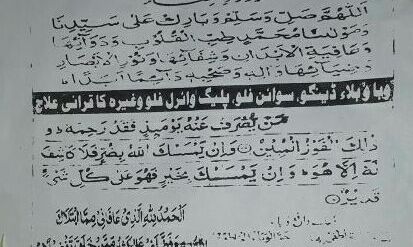 اللّٰهُمَّ صَلِّ وَسَلِّمْ وَبَارِكْ عَلٰى سَيِّدِنَا
وَمَوْلٰنَا مُحَمَّدٍ طِبِّ الْقُلُوْبِ وَدَوَآئِهَا
وَعَافِيَةِ الْاَبْدَانِ وَشِفَآئِهَا وَنُوْرِ الْاَبْصَارِ
وَضِيَآئِهَا وَاٰلِهٖ وَصَحْبِهٖ دَآئِمًا اَبَدًا
وباؤ بلاء، ڈینگو، سوائن فلو، پلیگ وائرل فلو وغیرہ کا قرآنی علاج
مَنْ يُّصْرَفْ عَنْهُ يَوْمَئِذٍ فَقَدْ رَحِمَهٗ وَ
ذٰلِكَ الْفَوْزُ الْمُبِيْنُ وَاِنْ يَّمْسَسْكَ اللّٰهُ بِضُرٍّ فَلَا كَاشِفَ
لَهٗ اِلَّا هُوَ وَاِنْ يَّمْسَسْكَ بِخَيْرٍ فَهُوَ عَلٰى كُلِّ شَيْءٍ
قَدِيْرٌ
اَلْحَمْدُ لِلّٰهِ الَّذِيْ عَافَانِيْ مِمَّا ابْتَلَاكَ